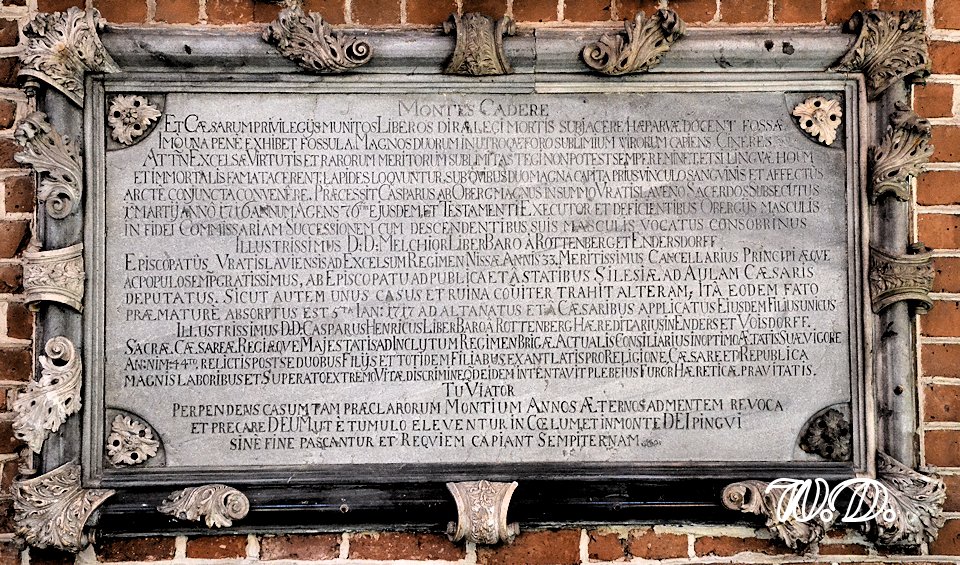 MONTES CADERE
ET CÆSARUM PRIVILEGIIS MUNITOS LIBEROS DIRÆ LEGI MORTIS SUBJACERE HÆ PARVÆ DOCENT FOSSÆ
IMO UNA PENE EXHIBET FOSSULA MAGNOS DUORUM IN UTROQUE FORO SUBLIMIUM VIRORUM CAPIENS CINERES
ATTÑ EXCELSÆ VIRTUTIS ET RARORUM MERITORUM SUBLIMITAS TEGI NON POTEST SEMPER EMINET, ET SI LINGVÆ HOUM
ET IMMORTALIS FAMA TACERENT, LAPIDES LOQVUNTUR, SUB QVIBUS DUO MAGNA CAPITA VINCULO SANGVINIS ET AFFECTUS
ARCTE CONJUNCTA CONVENÊRE. PRÆCESSIT CASPARUS AB OBERG MAGNUS IN SUMMO VRATISLAVENO SACERDOS SUBSECUTUS
1. MARTIJ ANNO 1716 ANNUM AGENS 76tum EJUSDEM, ET TESTAMENTI EXECUTOR ET DEFICIENTIBUS OBERGIIS MASCULIS
IN FIDEI COMMISSARIAM SUCCESSIONEM CUM DESCENDENTIBUS SUIS MASCULIS VOCATUS CONSOBRINUS
ILLUSTRISSIMUS D: D: MELCHIOR LIBER BARO À ROTTENBERG ET ENDERSDORFF.
EPISCOPATUS VRATISLAVIENSIS AD EXCELSUM REGIMEN NISSÆ ANNIS 33. MERITISSIMUS CANCELLARIUS PRINCIPI ÆQVE
AC POPULO SEMP GRATISSIMUS, AB EPISCOPATU AD PUBLICA ET À STATIBUS SILESIÆ AD AULAM CÆSARIS
DEPUTATUS. SICUT AUTEM UNUS CASUS ET RUINA COŪITER TRAHIT ALTERAM, ITA EODEM FATO
PRÆMATURE ABSORPTUS EST 5ta IAN: 1717 AD ALTANATUS ET À CÆSARIBUS APPLICATUS EJUSDEM FILIUS UNICUS
ILLUSTRISSIMUS D.D. CASPARUS HENRICUS LIBER BARO À ROTTENBERG HÆREDITARIUS IN ENDERS ET VOISDORFF.
SACRÆ. CÆSAREÆ REGIÆQVE MAJESTATIS AD INCLUTUM REGIMEN BRIGÆ ACTUALIS CONSILIARIUS IN OPTIMO ÆTATIS SUÆ VIGORE
AN: NIM: 44to, RELICTIS POST SE DUOBUS FILIIS ET TOTIDEM FILIABUS EXANTLATIS PRO RELIGIONE, CÆSARE ET REPUBLICA
MAGNIS LABORIBUS ET SUPERATO EXTREMO VITÆ DISCRIMINE QD EIDEM INTENTAVIT PLEBEIUS FUROR HÆRETICÆ PRAVITATIS.
TU VIATOR
PERPENDENS CASUM TAM PRÆCLARORUM MONTIUM ANNOS ÆTERNOS AD MENTEM REVOCA
ET PRECARE DEUM UT È TUMULO ELEVENTUR IN CŒLUM, ET IN MONTE DEI PINGVI
SINE FINE PASCANTUR ET REQVIEM CAPIANT SEMPITERNAM
W.D.